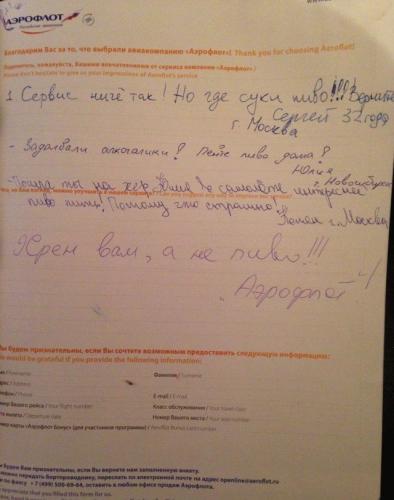 www.
АЭРОФЛОТ
Российские авиалинии
Благодарим Вас за то, что выбрали авиакомпанию «Аэрофлот»! Thank you for choosing Aeroflot!
Поделитесь, пожалуйста, Вашими впечатлениями от сервиса компании «Аэрофлот»
Please don't hesitate to give us your impressions of Aeroflot's service
1. Сервис ниче так! Но где суки пиво!!!? Верните
Сергей 32 года
г. Москва
- Задолбали алкоголики! Пейте пиво дома!
Юлия
г. Новосибирск
- Пошла ты на хер Юлия в самолёте интересней
пиво пить! Потому что страшно!
г. Москва
Хрен вам, а не пиво!!!
"Аэрофлот"
Мы будем признательны, если Вы сочтете возможным предоставить следующую информацию:
We would be grateful if you provide the following information:
Имя / Forename
Фамилия / Surname
Адрес / Address
Телефон / Phone
E-mail / E-mail
Номер Вашего рейса / Your flight number
Класс обслуживания / Your travel class
Дата вылета / Departure date
Номер Вашего места / Your seat number
Номер карты «Аэрофлот Бонус» (для участников программы) / Aeroflot Bonus card number
Мы будем Вам признательны, если Вы вернете нам заполненную анкету.
можно передать бортпроводнику, переслать по электронной почте на адрес openline@aeroflot.ru
по факсу + 7 (499) 500-69-64, оставить в любом офисе продаж Аэрофлота.
appreciate that you filled this form for us.